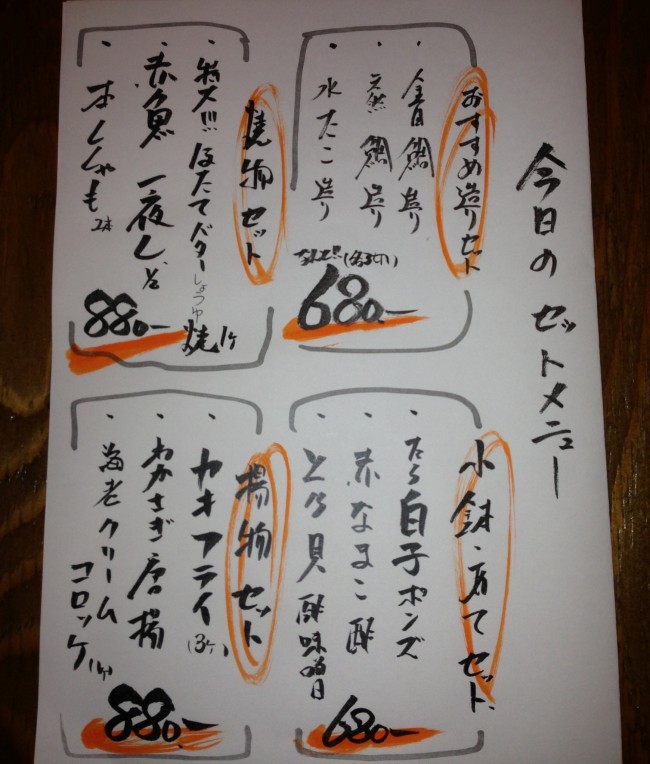 今日のセットメニュー
おすすめ造りセット
・金目鯛造り
・天然 鯛造り
・水たこ造り
(各3切)
680.-
焼物セット
・特大!!! ほたてバターしょうゆ焼 1ケ
・赤魚 一夜干し
・本ししゃも 2本
880.-
小鉢・あてセット
・たら白子ポンズ
・赤なまこ酢
・とり貝 酢味噌
680.-
揚物セット
・カキフライ(3ケ)
・わかさぎ唐揚
・海老クリームコロッケ1ケ
880.-